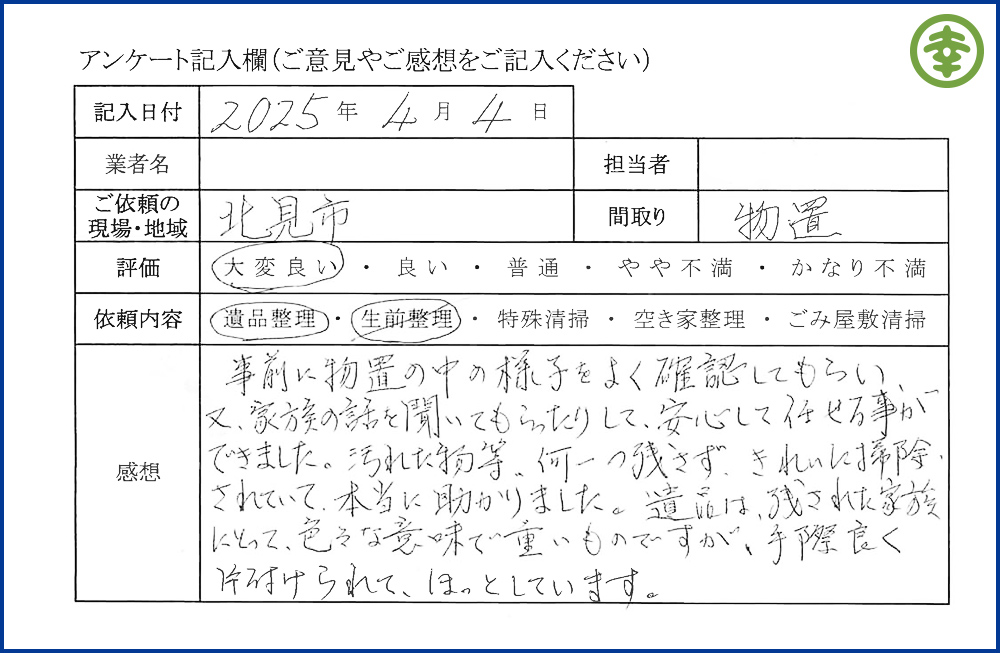 幸
アンケート記入欄(ご意見やご感想をご記入ください)
記入日付 2025 年 4 月 4 日
業者名 担当者
ご依頼の
現場・地域 北見市 間取り 物置
評価 大変良い ・ 良い ・ 普通 ・ やや不満 ・ かなり不満
依頼内容 遺品整理 ・ 生前整理 ・ 特殊清掃 ・ 空き家整理 ・ ごみ屋敷清掃
感想
事前に物置の中の様子をよく確認してもらい、
又、家族の話を聞いてもらったりして、安心して任せる事が
できました。汚れた物等、何一つ残さず、きれいに掃除
されていて、本当に助かりました。遺品は、残された家族
にとって、色々な意味で重いものですが、手際良く
片付けられて、ほっとしています。